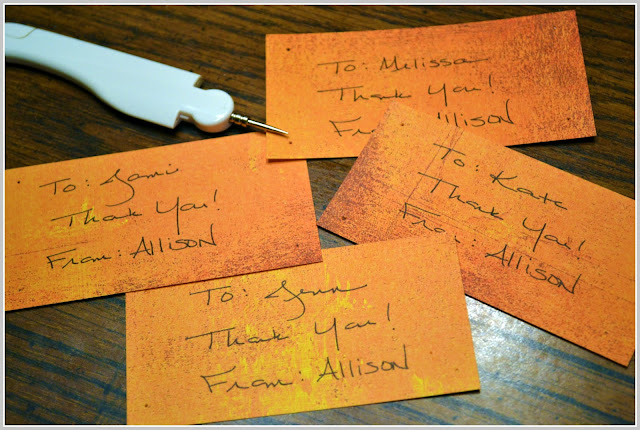 To: Melissa
Thank You!
From: Allison
To: Kate
Thank You!
From: Allison
To: Jami
Thank You!
From: Allison
To: Jenn
Thank You!
From: Allison